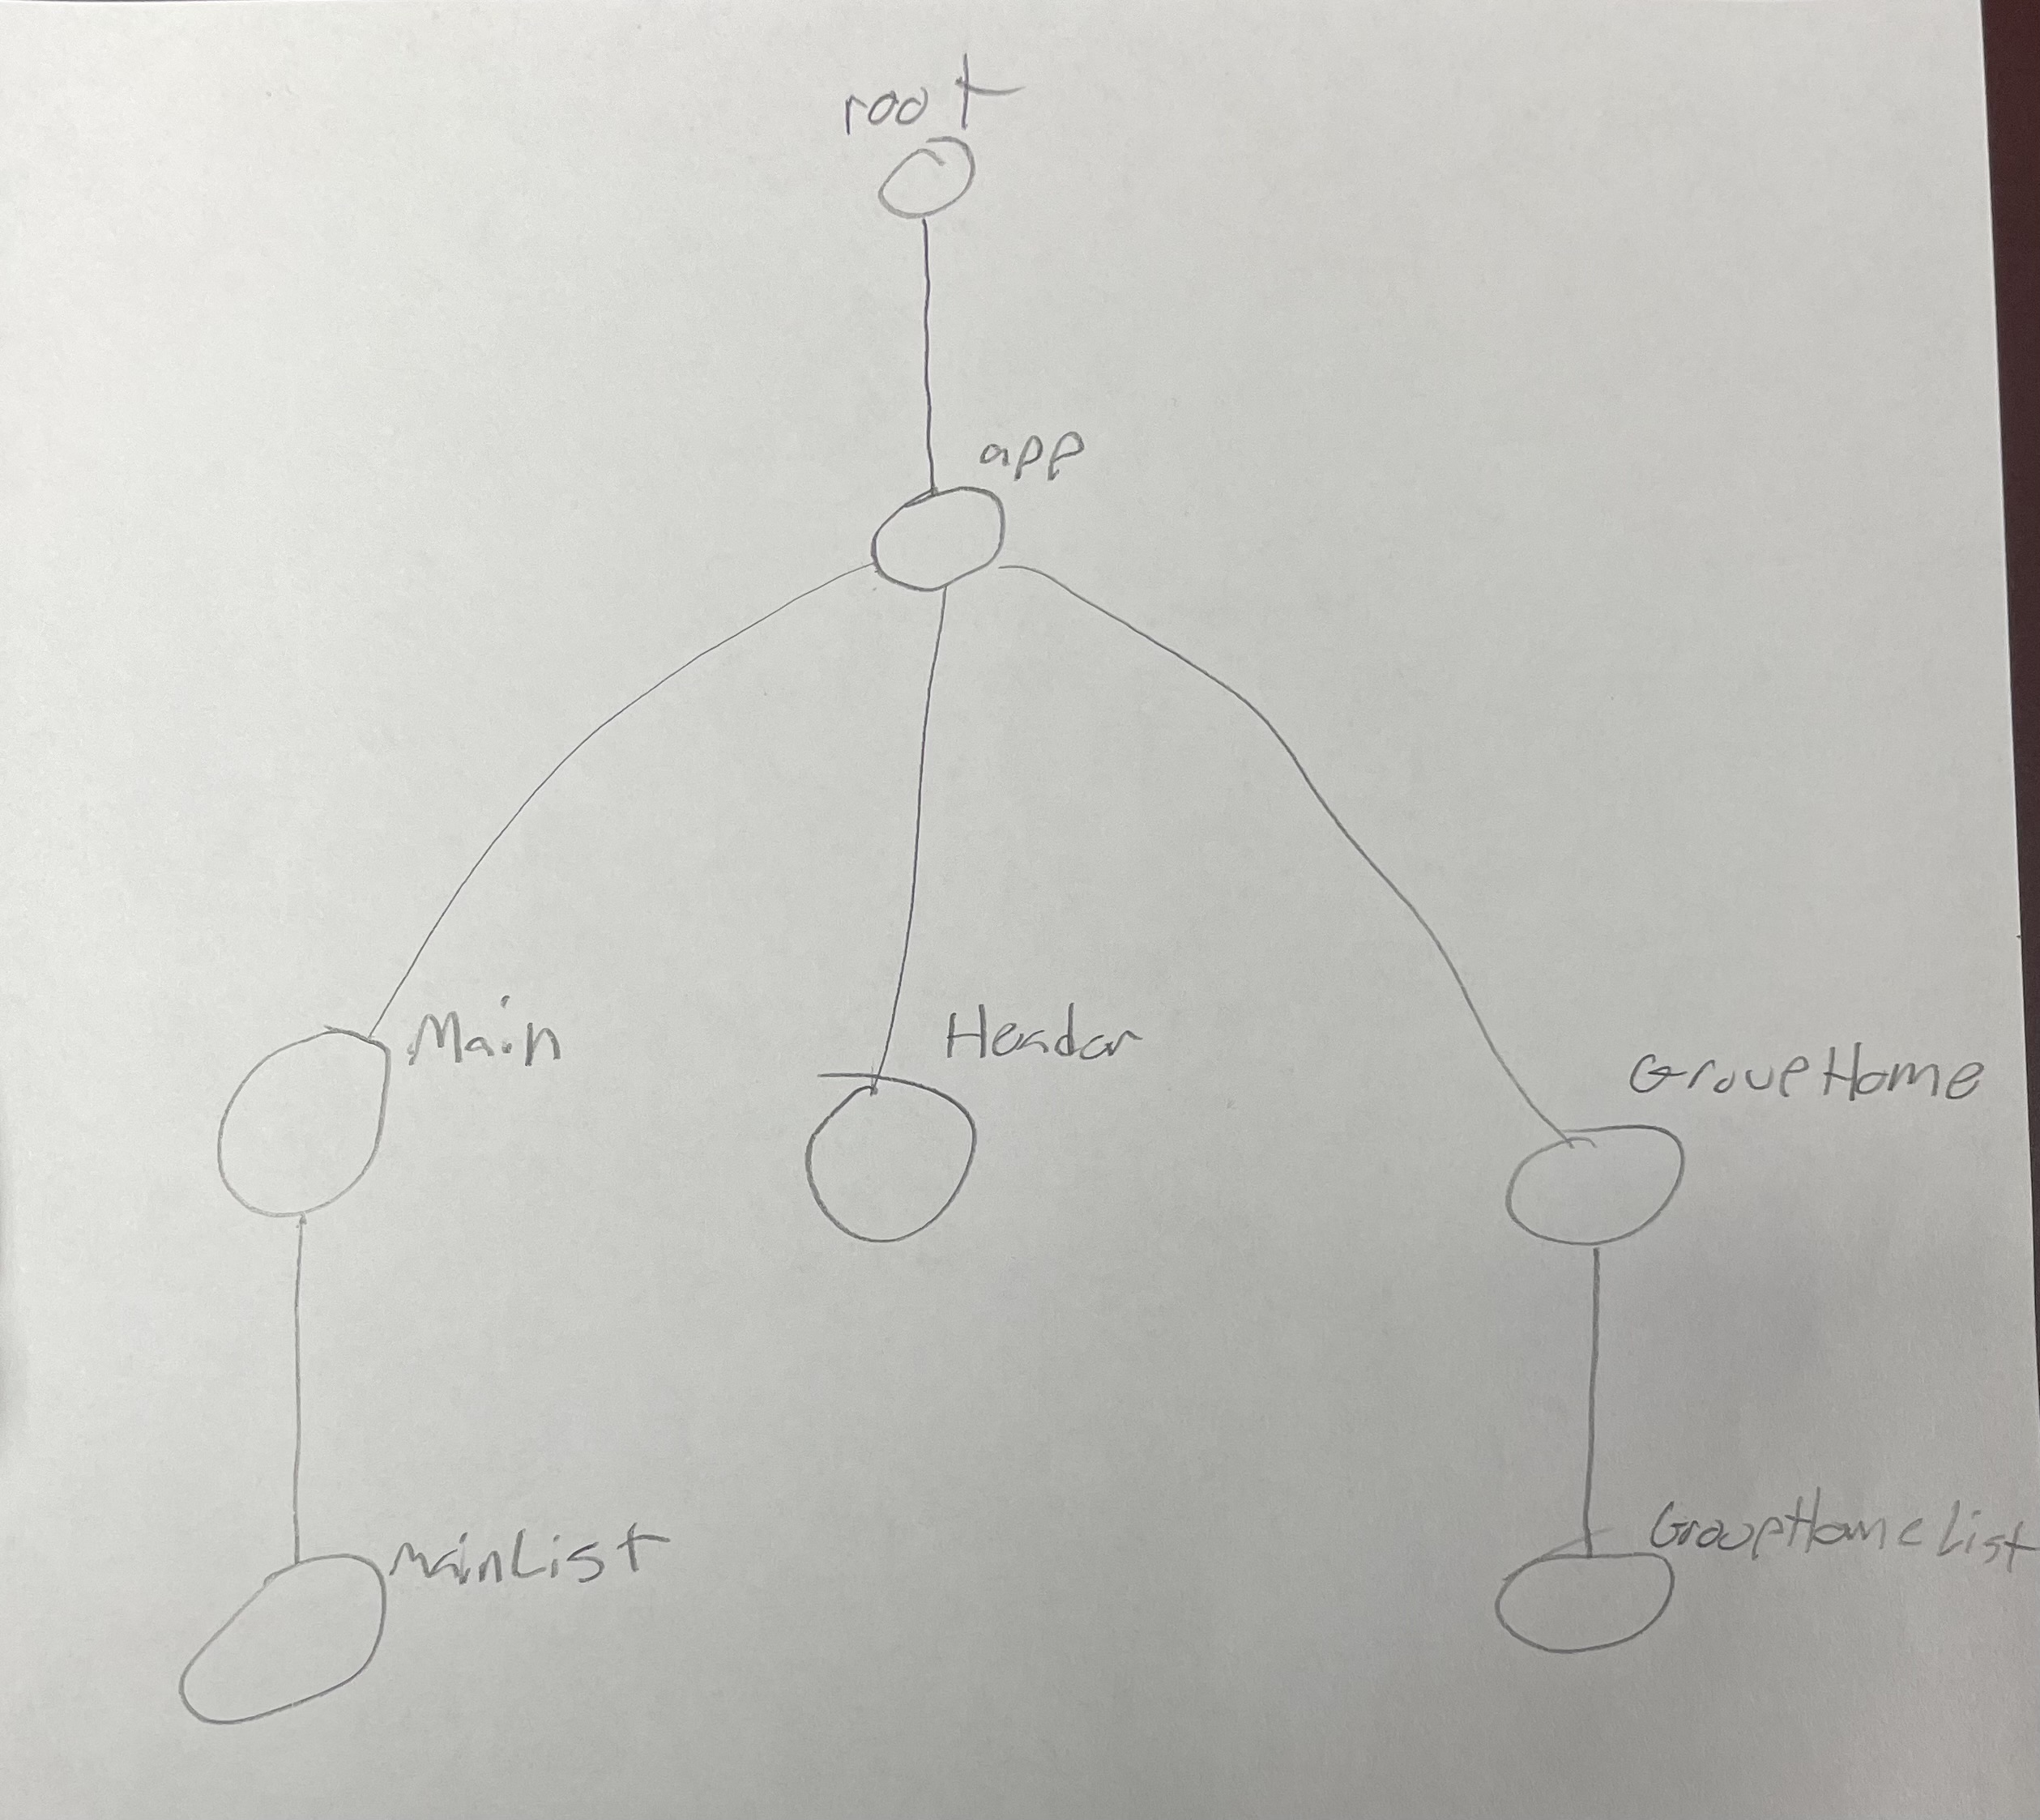 root
app
Main
Header
GroupHome
MainList
GroupHomeList